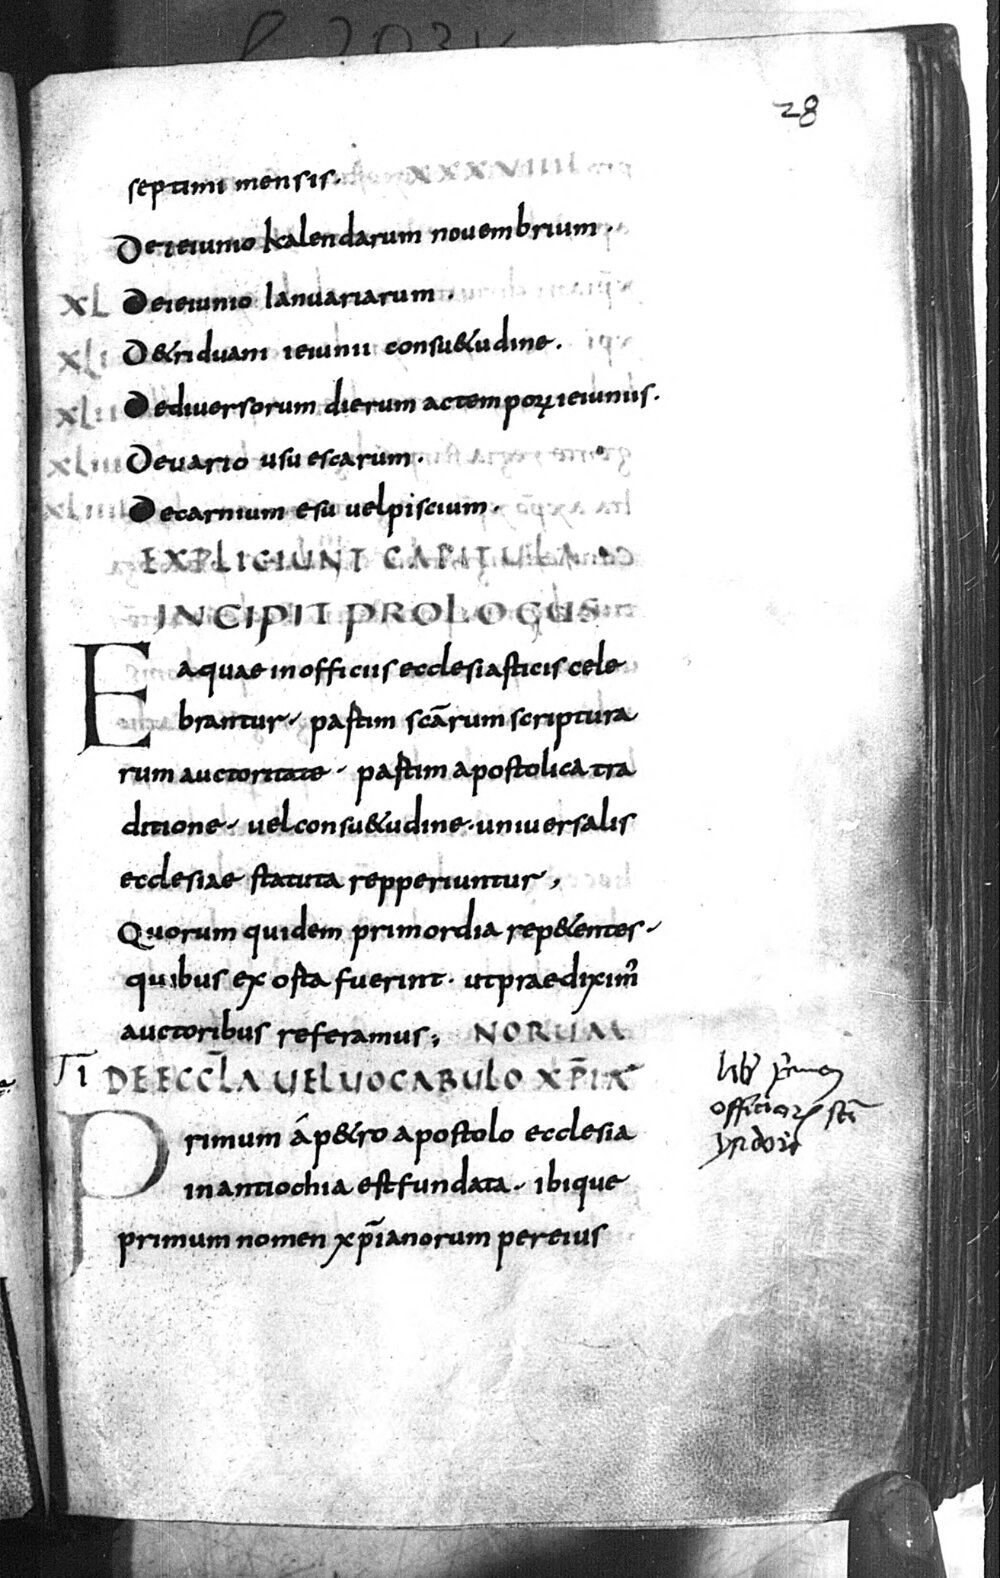 28
septimi mensis.
De ieiunio kalendarum novembrium.
XL De ieiunio Ianuariarum.
XLI D&riduani ieiunii consu&udine.
XLII De diversorum dierum ac temporꝝ ieiuniis.
XLIII De vario usu escarum.
XLIIII De carnium esu vel piscium.
EXPLICIUNT CAPITULA
INCIPIT PROLOGUS
Ea quae in officiis ecclesiasticis cele
brantur. partim scārum scriptura
rum auctoritate. partim apostolica tra
ditione. vel consu&udine. universalis
ecclesiae statuta repperiuntur,
Quorum quidem primordia rep&entes.
quibus exosta fuerint. ut praediximꝰ
auctoribus referamus; NORUM
I DE ECCL̄A VEL VOCABULO XP̄IA
Primum á p&ro apostolo ecclesia
in antiochia est fundata. ibique
primum nomen xp̄ianorum per eius